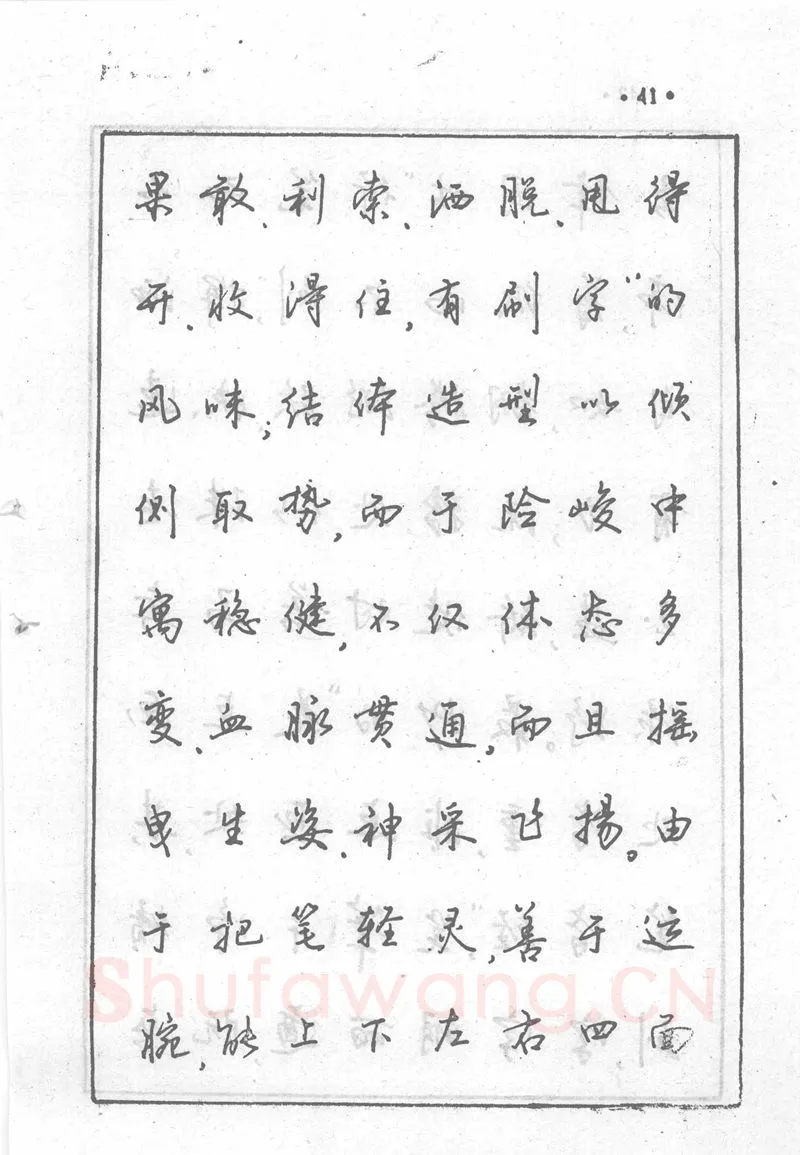 ·41·
果敢、利索、洒脱、甩得
开、收得住,有刷字”的
风味;结体造型以倾
侧取势,而于险峻中
寓稳健,不仅体态多
变、血脉贯通,而且摇
曳生姿、神采飞揚。由
于把笔轻灵,善于运
腕,能上下左右四面
Shufawang.CN